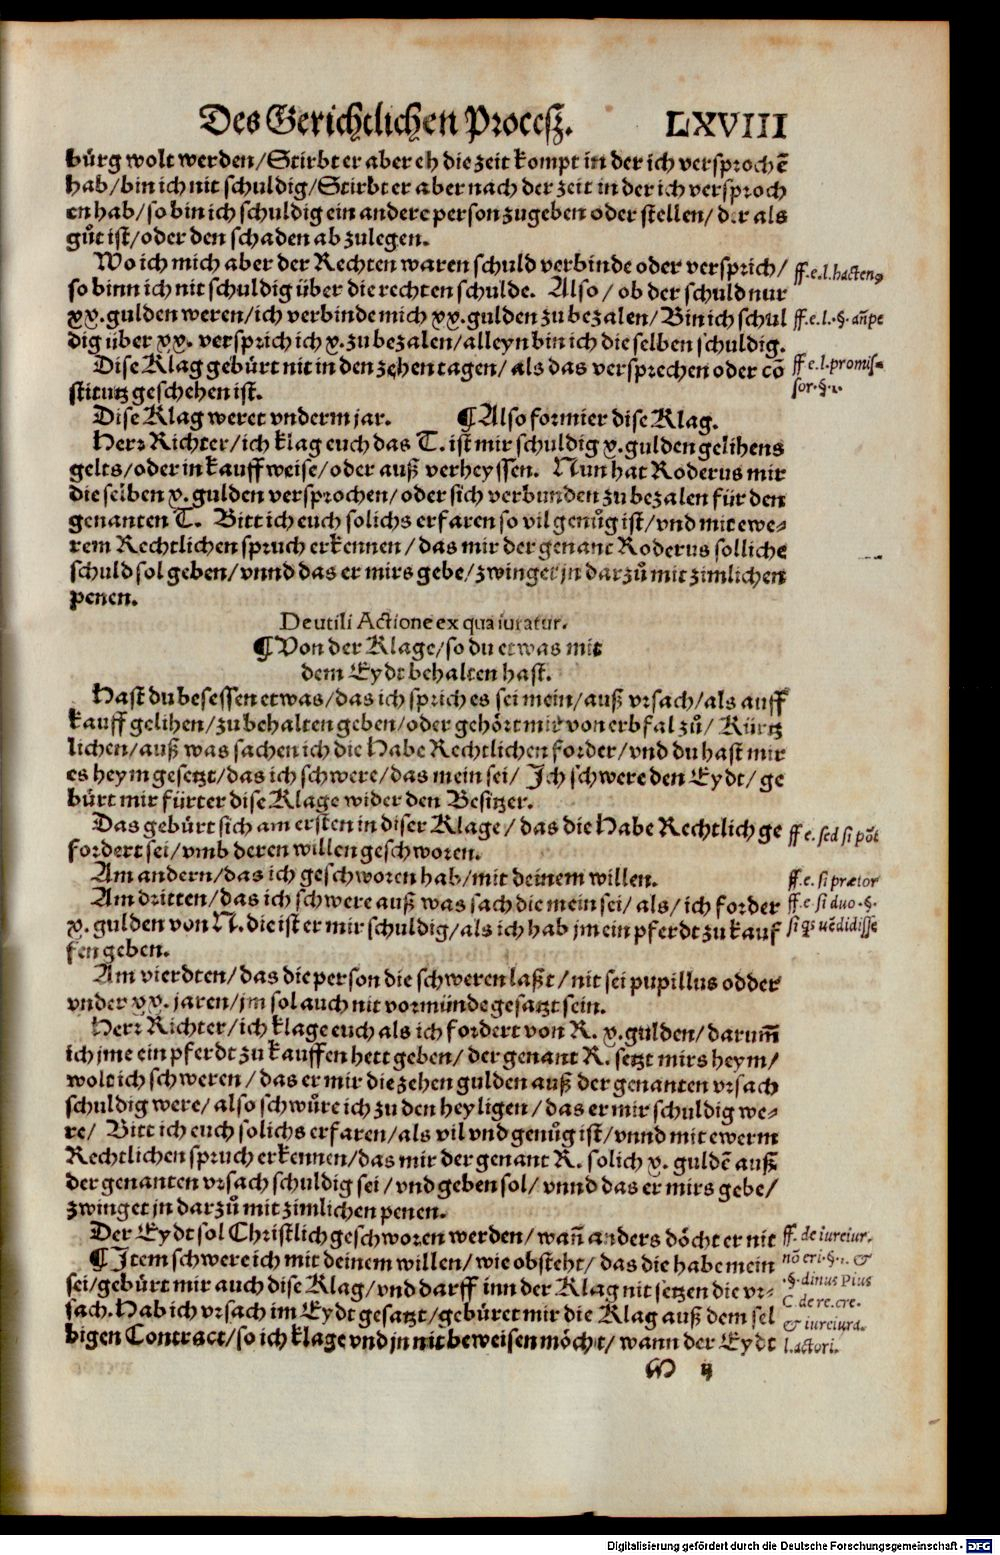 Des Gerichtlichen Procesz. LXVIII
bürg wolt werden/Stirbt er aber eh die zeit kompt in der ich versprochē
hab/bin ich nit schuldig/Stirbt er aber nach der zeit in der ich versproch
en hab/so bin ich schuldig ein andere person zugeben oder stellen/der als
gůt ist/oder den schaden ab zulegen.
Wo ich mich aber der Rechten waren schuld verbinde oder versprich/
ff.e.l.hacten9
so binn ich nit schuldig über die rechten schulde. Also/ ob der schuld nur
xx.gulden weren/ich verbinde mich xx.gulden zu bezalen/Bin ich schul
ff.e.l.§.
dig über xx. versprich ich x.zu bezalen/alleyn bin ich die selben schuldig.
Dise Klag gebürt nit in den zehen tagen/als das versprechen oder cō
ff e.l.promis-
stitutz geschehen ist.
sor.§.1.
Dise Klag weret vnderm jar. ¶Also formier dise Klag.
Herr Richter/ich klag euch das T. ist mir schuldig x.gulden gelihens
gelts/oder in kauff weise/oder auß verheyssen. Nun hat Roderus mir
die selben x.gulden versprochen/oder sich verbunden zu bezalen für den
genanten T. Bitt ich euch solichs erfaren so vil genůg ist/vnd mit ewe-
rem Rechtlichen spruch erkennen/das mir der genant Roderus solliche
schuld sol geben/vnnd das er mirs gebe/zwinget jn darzů mit zimlichen
penen.
De utili Actione ex qua iuratur.
¶Von der Klage/so du etwas mit
dem Eydt behalten hast.
Hast du besessen etwas/das ich sprich es sei mein/auß vrsach/als auff
kauff gelihen/zu behalten geben/oder gehört mir von erbfal zů/ Kürtz
lichen/auß was sachen ich die Habe Rechtlichen forder/vnd du hast mir
es heym gesetzt/das ich schwere/das mein sei/ Ich schwere den Eydt/ge
bürt mir fürter dise Klage wider den Besitzer.
Das gebürt sich am ersten in diser Klage/das die Habe Rechtlich ge
ff e. sed si pōt
fordert sei/vmb deren willen geschworen.
Am andern/das ich geschworen hab/mit deinem willen.
ff.e. si prætor
Am dritten/das ich schwere auß was sach die mein sei/als/ich forder
ff.e. si duo.§.
x.gulden von N.die ist er mir schuldig/als ich hab jm ein pferdt zu kauf
si qs uēdidisse
fen geben.
Am vierdten/das die person die schweren laßt/nit sei pupillus odder
vnder xx. jaren/jm sol auch nit vormünde gesatzt sein.
Herr Richter/ich klage euch als ich fordert von R. x.gulden/darum̄
ich jme ein pferdt zu kauffen hett geben/der genant R. setzt mirs heym/
wolt ich schweren/das er mir die zehen gulden auß der genanten vrsach
schuldig were/also schwůre ich zu den heyligen/das er mir schuldig we-
re/ Bitt ich euch solichs erfaren/als vil vnd genůg ist/vnnd mit ewerm
Rechtlichen spruch erkennen/das mir der genant R. solich x. guldē auß
der genanten vrsach schuldig sei/vnd geben sol/vnnd das er mirs gebe/
zwinget jn darzů mit zimlichen penen.
Der Eydt sol Christlich geschworen werden/wañ anders döcht er nit
ff. de iureiur.
¶Item schwere ich mit deinem willen/wie obsteht/das die habe mein
nō eri.§.1. &
sei/gebürt mir auch dise Klag/vnd darff inn der Klag nit setzen die vr-
.§.diuus Pius
sach. Hab ich vrsach im Eydt gesatzt/gebüret mir die Klag auß dem sel
C de re.cre.
& iureiura.
bigen Contract/so ich klage vnd jn nit beweisen möcht/wann der Eydt
l.actori.
M ij
Digitalisierung gefördert durch die Deutsche Forschungsgemeinschaft - DFG